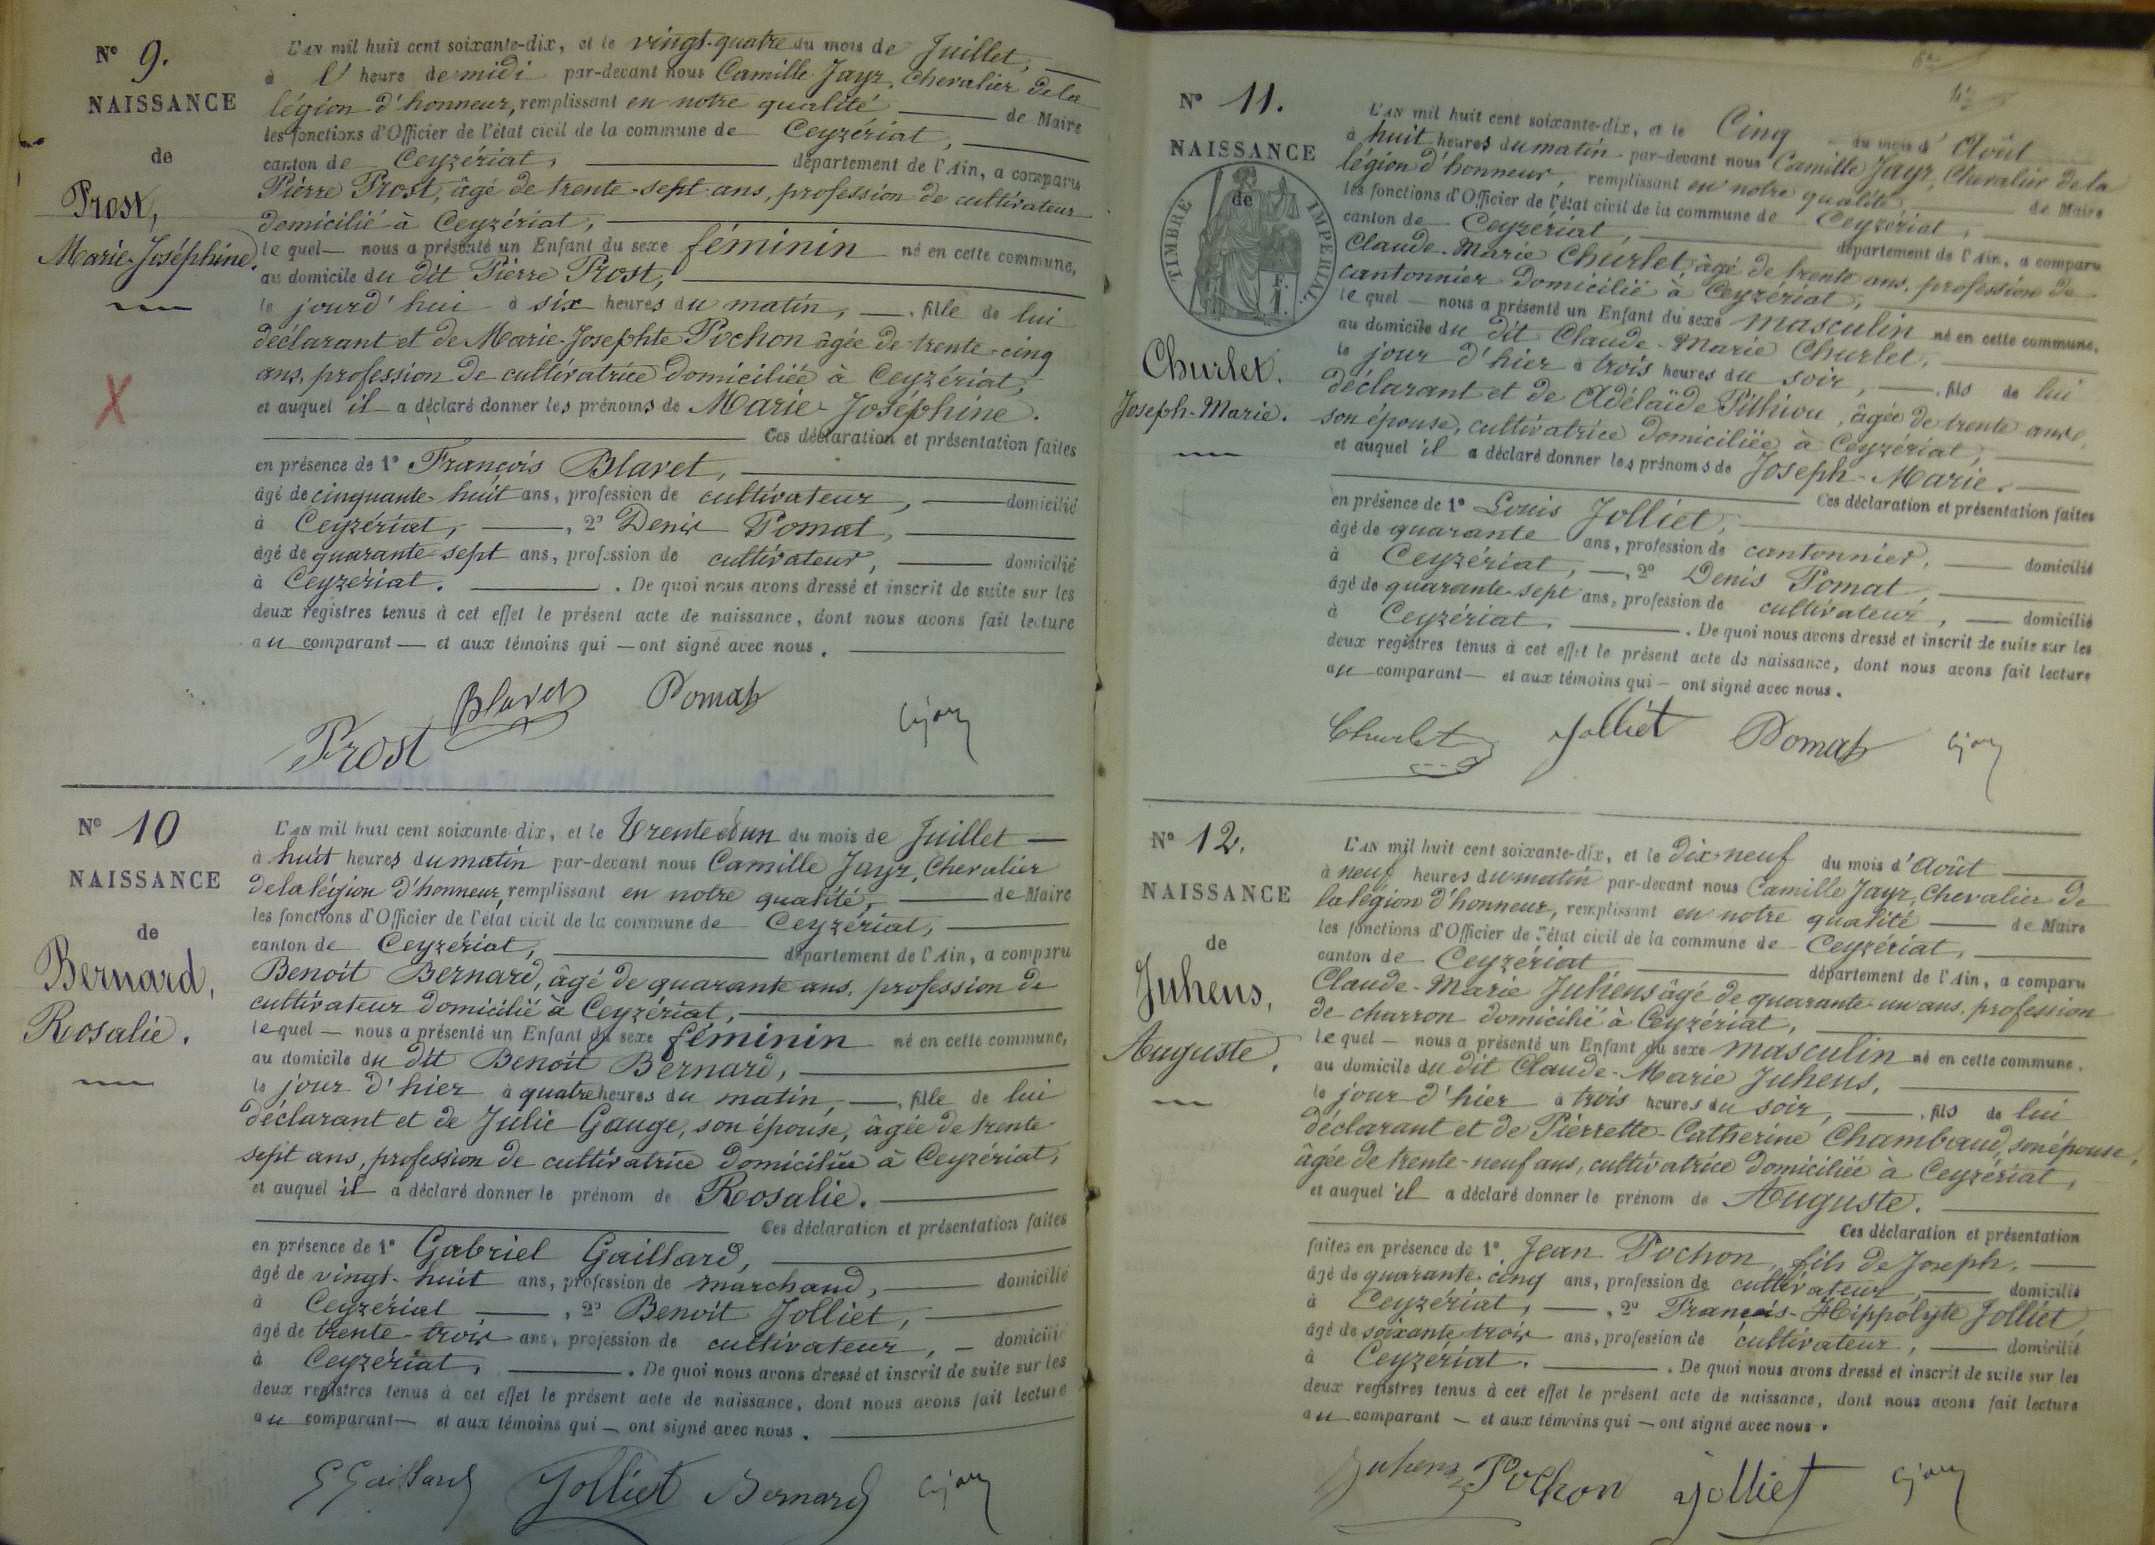 N° 9.
NAISSANCE
de
Prost,
Marie-Joséphine.
L'AN mil huit cent soixante-dix, et le vingt-quatre du mois de Juillet,
à l'heure de midi par-devant nous Camille Jayr, Chevalier de la
légion d'honneur, remplissant en notre qualité de Maire
les fonctions d'Officier de l'état civil de la commune de Ceyzériat,
canton de Ceyzériat, département de l'Ain, a comparu
Pierre Prost, âgé de trente-sept ans, profession de cultivateur
domicilié à Ceyzériat,
lequel nous a présenté un Enfant du sexe féminin né en cette commune,
au domicile du dit Pierre Prost,
le jourd'hui à six heures du matin, fille de lui
déclarant et de Marie-Josephte Pochon âgée de trente-cinq
ans, profession de cultivatrice domiciliée à Ceyzériat,
et auquel il a déclaré donner les prénoms de Marie-Joséphine.
Ces déclaration et présentation faites
en présence de 1° François Blavet,
âgé de cinquante-huit ans, profession de cultivateur, domicilié
à Ceyzériat, 2° Denis Pomat,
âgé de quarante-sept ans, profession de cultivateur, domicilié
à Ceyzériat. De quoi nous avons dressé et inscrit de suite sur les
deux registres tenus à cet effet le présent acte de naissance, dont nous avons fait lecture
au comparant et aux témoins qui ont signé avec nous.
Prost Blavet Pomat
N° 10
NAISSANCE
de
Bernard,
Rosalie.
L'AN mil huit cent soixante-dix, et le trente et un du mois de Juillet
à huit heures du matin par-devant nous Camille Jayr, Chevalier
de la légion d'honneur, remplissant en notre qualité, de Maire
les fonctions d'Officier de l'état civil de la commune de Ceyzériat,
canton de Ceyzériat, département de l'Ain, a comparu
Benoit Bernard, âgé de quarante ans, profession de
cultivateur domicilié à Ceyzériat,
lequel nous a présenté un Enfant du sexe féminin né en cette commune,
au domicile du dit Benoit Bernard,
le jour d'hier à quatre heures du matin, fille de lui
déclarant et de Julie Gauge, son épouse, âgée de trente
sept ans, profession de cultivatrice domiciliée à Ceyzériat,
et auquel il a déclaré donner le prénom de Rosalie.
Ces déclaration et présentation faites
en présence de 1° Gabriel Gaillard,
âgé de vingt-huit ans, profession de marchand, domicilié
à Ceyzériat, 2° Benoit Jolliet,
âgé de trente-trois ans, profession de cultivateur, domicilié
à Ceyzériat, De quoi nous avons dressé et inscrit de suite sur les
deux registres tenus à cet effet le présent acte de naissance, dont nous avons fait lecture
au comparant et aux témoins qui ont signé avec nous.
G Gaillard Jolliet Bernard
N° 11.
NAISSANCE
de
TIMBRE IMPERIAL
Churlet.
Joseph-Marie.
L'AN mil huit cent soixante-dix, et le Cinq du mois d'Août
à huit heures du matin par-devant nous Camille Jayr, Chevalier de la
légion d'honneur, remplissant en notre qualité de Maire
les fonctions d'Officier de l'état civil de la commune de Ceyzériat,
canton de Ceyzériat, département de l'Ain, a comparu
Claude-Marie Churlet, âgé de trente ans, profession de
cantonnier domicilié à Ceyzériat,
lequel nous a présenté un Enfant du sexe masculin né en cette commune,
au domicile du dit Claude-Marie Churlet,
le jour d'hier à trois heures du soir, fils de lui
déclarant et de Adélaïde Pithiou, âgée de trente ans,
son épouse, cultivatrice domiciliée à Ceyzériat,
et auquel il a déclaré donner les prénoms de Joseph-Marie.
Ces déclaration et présentation faites
en présence de 1° Louis Jolliet,
âgé de quarante ans, profession de cantonnier, domicilié
à Ceyzériat, 2° Denis Pomat,
âgé de quarante-sept ans, profession de cultivateur, domicilié
à Ceyzériat. De quoi nous avons dressé et inscrit de suite sur les
deux registres tenus à cet effet le présent acte de naissance, dont nous avons fait lecture
au comparant et aux témoins qui ont signé avec nous.
Churlet Jolliet Pomat
N° 12.
NAISSANCE
de
Juhens,
Auguste,
L'AN mil huit cent soixante-dix, et le dix-neuf du mois d'Août
à neuf heures du matin par-devant nous Camille Jayr, Chevalier de
la légion d'honneur, remplissant en notre qualité de Maire
les fonctions d'Officier de l'état civil de la commune de Ceyzériat,
canton de Ceyzériat département de l'Ain, a comparu
Claude-Marie Juhens âgé de quarante-un ans, profession
de charron domicilié à Ceyzériat,
lequel nous a présenté un Enfant du sexe masculin né en cette commune,
au domicile du dit Claude-Marie Juhens,
le jour d'hier à trois heures du soir, fils de lui
déclarant et de Pierrette-Catherine Chambaud, son épouse,
âgée de trente-neuf ans, cultivatrice domiciliée à Ceyzériat,
et auquel il a déclaré donner le prénom de Auguste.
Ces déclaration et présentation
faites en présence de 1° Jean Pochon, fils de Joseph,
âgé de quarante-cinq ans, profession de cultivateur, domicilié
à Ceyzériat, 2° Francois-Hippolyte Jolliet,
âgé de soixante trois ans, profession de cultivateur, domicilié
à Ceyzériat. De quoi nous avons dressé et inscrit de suite sur les
deux registres tenus à cet effet le présent acte de naissance, dont nous avons fait lecture
au comparant et aux témoins qui ont signé avec nous.
Juhens Pochon Jolliet